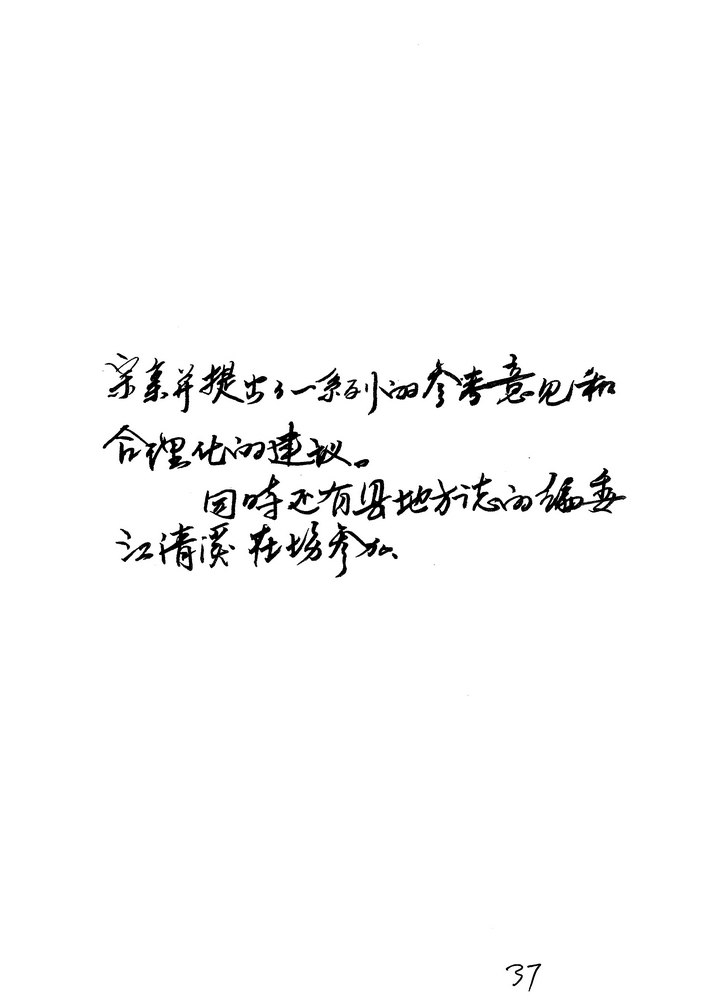 宗亲并提出了一系列的参考意见和
合理化的建议。
同時还有县地方志的编委
江清溪在场参加
37